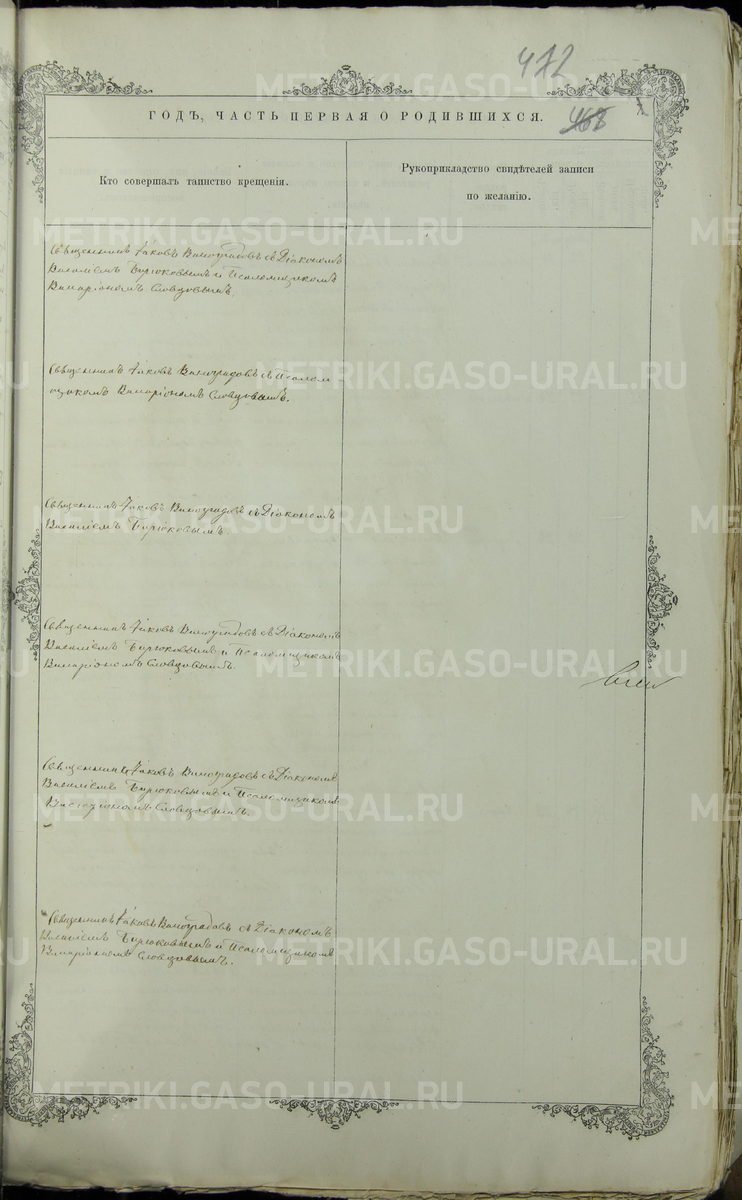 472
468
ГОДЪ, ЧАСТЬ ПЕРВАЯ О РОДИВШИХСЯ.
Кто совершалъ таинство крещенія.
Рукоприкладство свидѣтелей записи
по желанію.
Священникъ Іаковъ Виноградовъ съ Діакономъ
Василіемъ Бирюковымъ и Псаломщикомъ
Иларіономъ Словцовымъ.
Священникъ Іаковъ Виноградовъ съ Псалом
щикомъ Иларіономъ Словцовымъ.
Священникъ Іаковъ Виноградовъ съ Діакономъ
Василіемъ Бирюковымъ.
Священникъ Іаковъ Виноградовъ съ Діакономъ
Василіемъ Бирюковымъ и Псаломщикомъ
Иларіономъ Словцовымъ.
Священникъ Іаковъ Виноградовъ съ Діакономъ
Василіемъ Бирюковымъ и Псаломщикомъ
Иларіономъ Словцовымъ.
Священникъ Іаковъ Виноградовъ съ Діакономъ
Василіемъ Бирюковымъ и Псаломщикомъ
Иларіономъ Словцовымъ.
METRIKI.GASO-URAL.RU